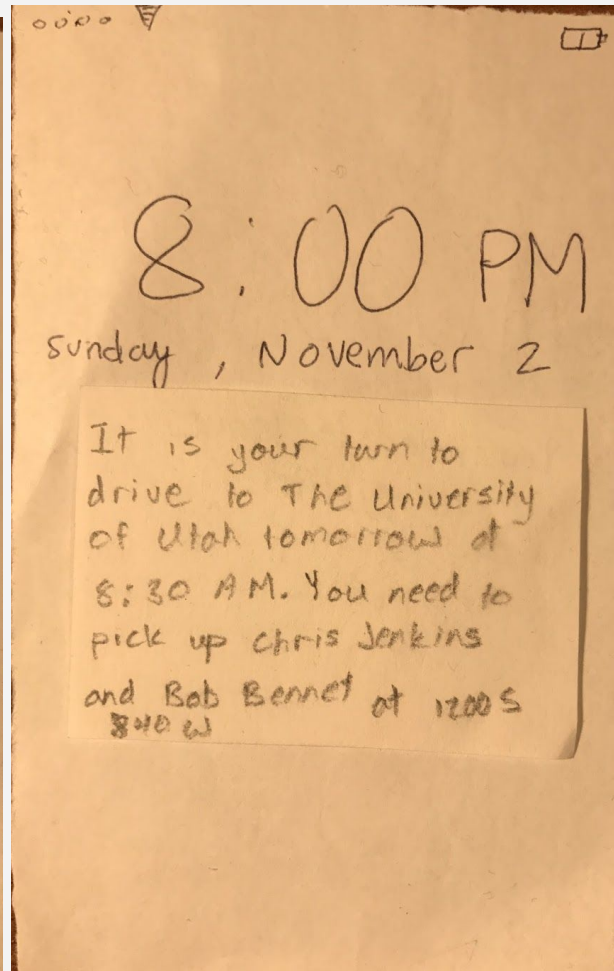 8:00 PM
Sunday, November 2
It is your turn to
drive to The University
of Utah tomorrow at
8:30 AM. You need to
pick up Chris Jenkins
and Bob Bennet at 1200 S
840 W